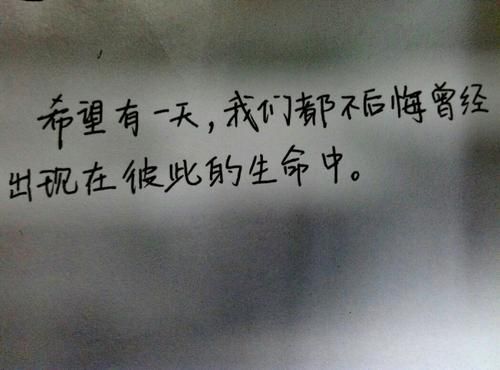 希望有一天,我们都不后悔曾经
出现在彼此的生命中。